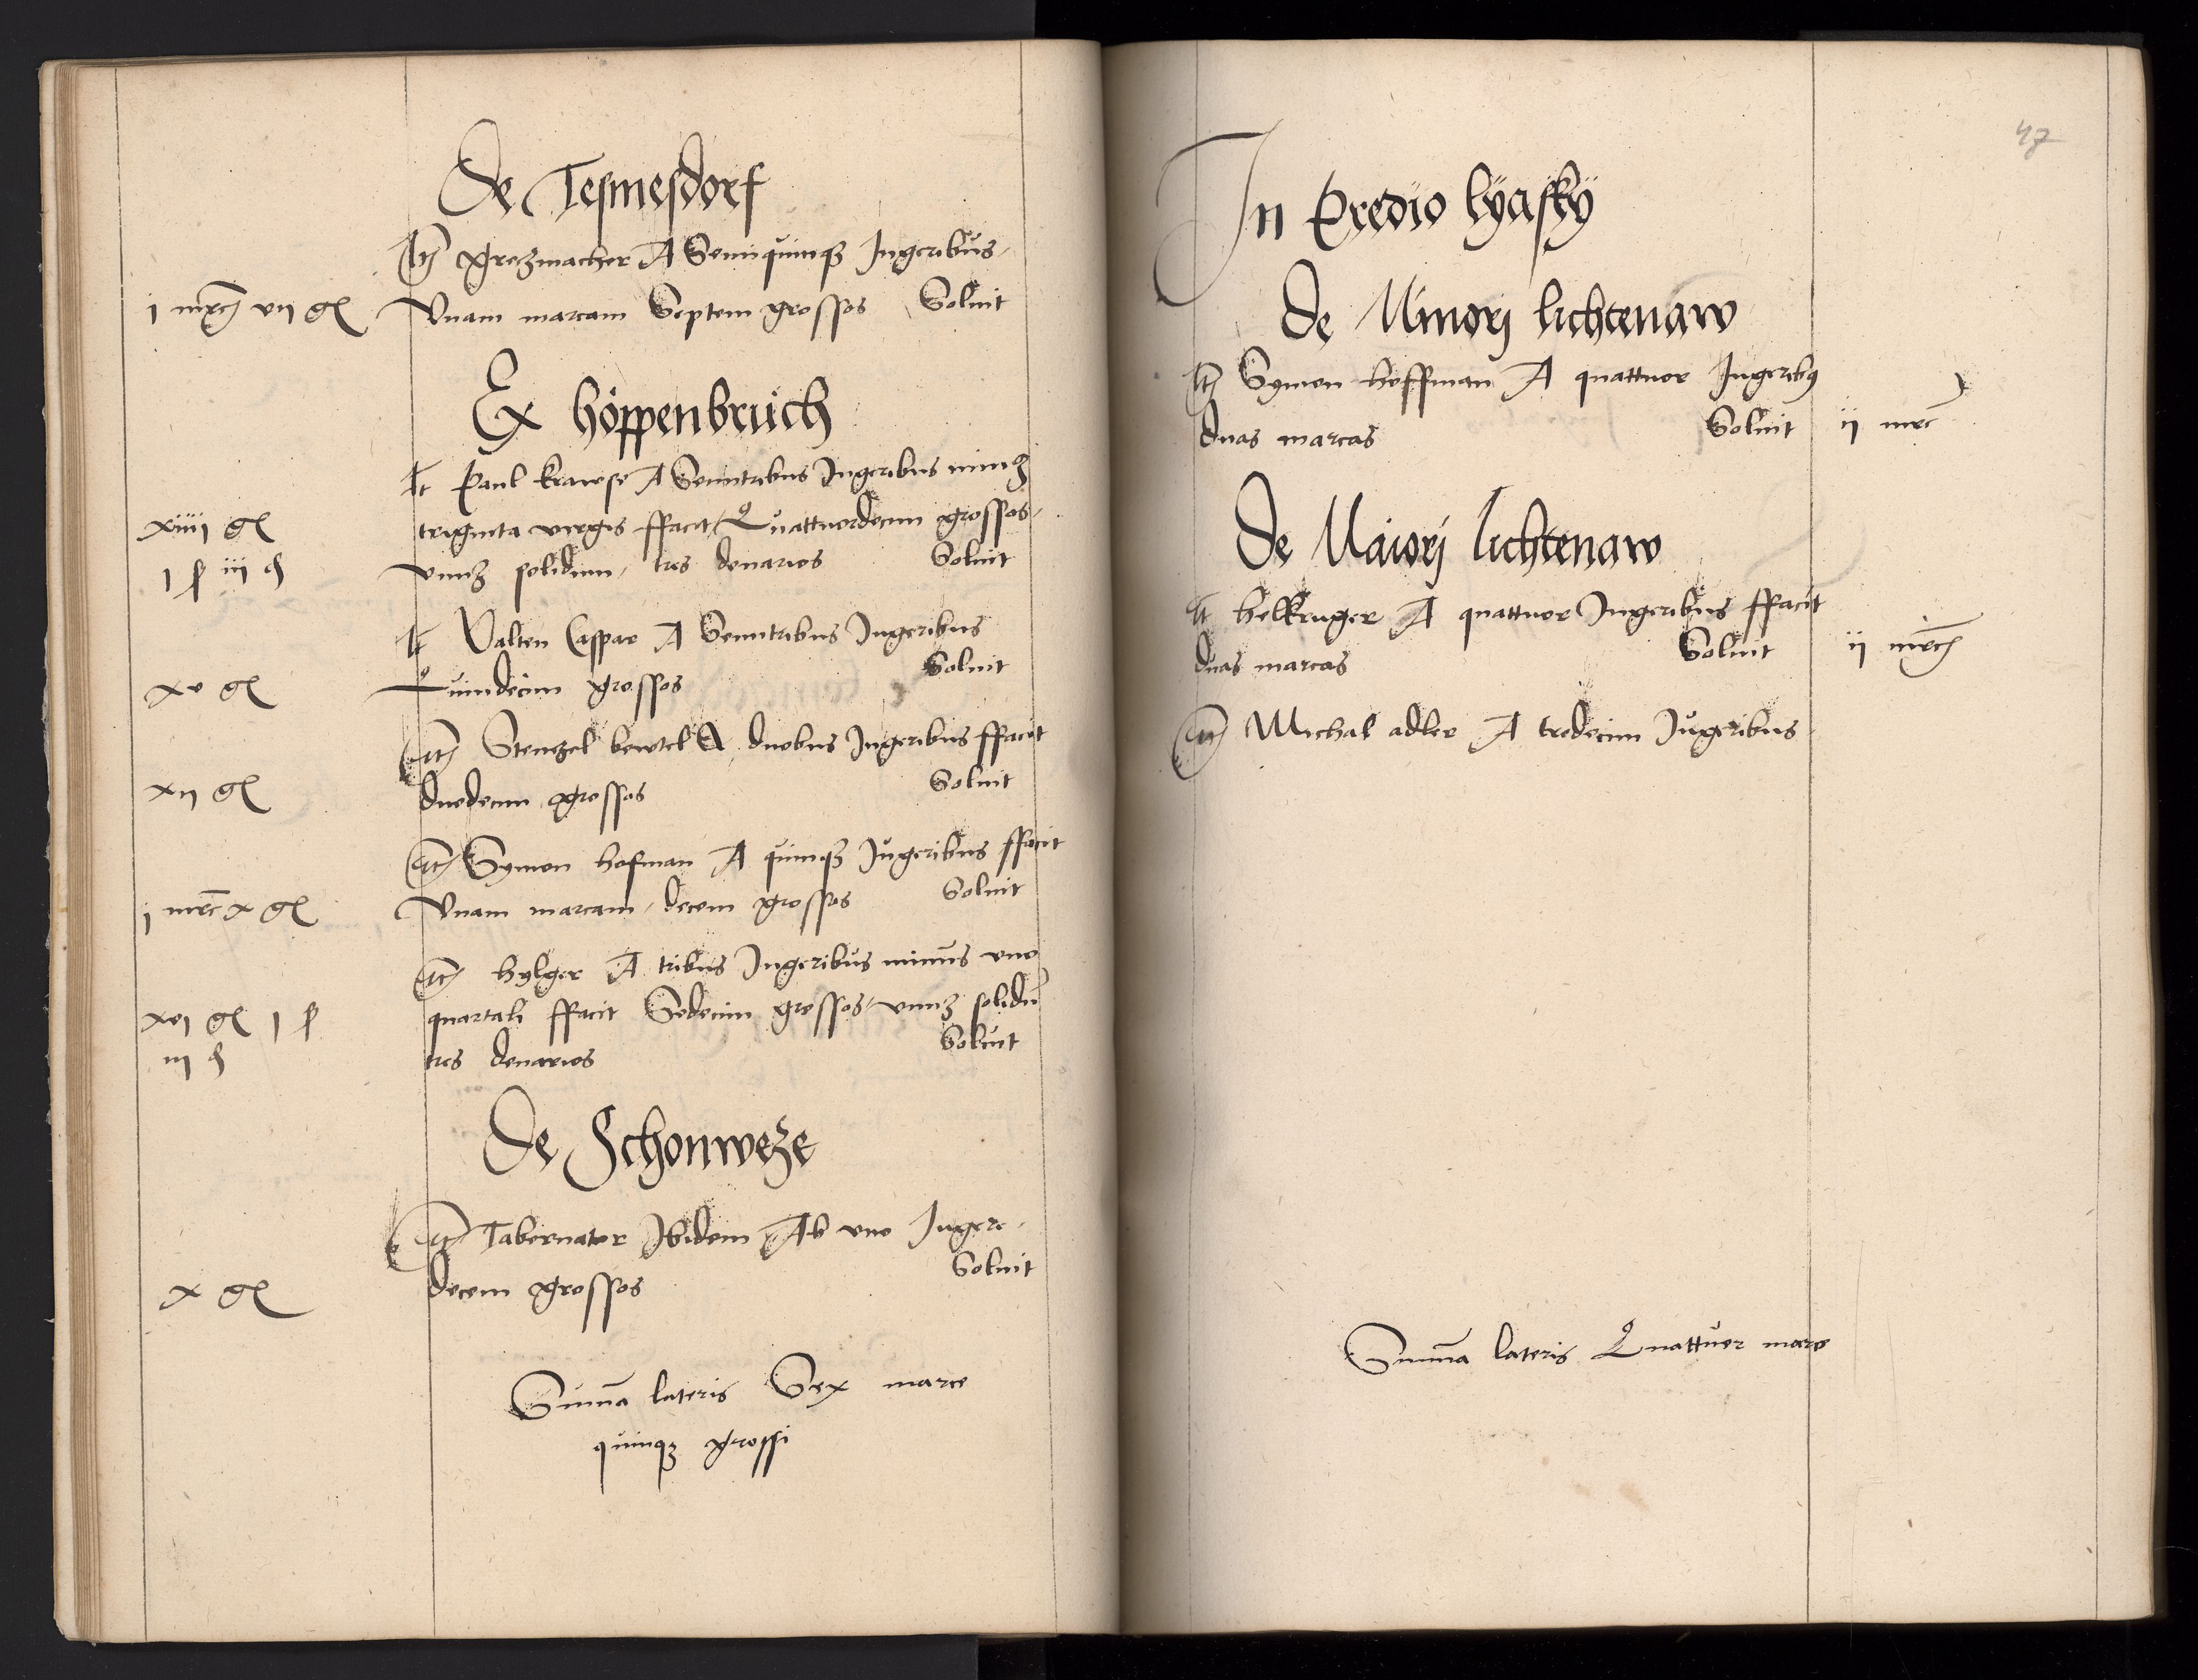 De Tesmesdorf
It(em) Grezmacher A Semiquinq(ue) Jugeribus
j mrc vij gl Vnam marcam Septem grossos Soluit
Ex höppenbruch
It Paul krawse A Semitribus Jugeribus min(us)
xiiij gl triginta virgis ffacit Quattuordecim grossos
j s iij d vnu(m) solidum, tres denarios Soluit
It Valten Caspar A Semitribus Jugeribus
xv gl Quindecim grossos Soluit
It Stenzel bewtel A duobus Jugeribus ffacit
xij gl duodecim grossos Soluit
It Symon hofman A quinq(ue) Jugeribus ffacit
j mrc x gl Vnam marcam, decem grossos Soluit
It hylger A tribus Jugeribus minus vno
xvj gl j s quartali ffacit Sedecim grossos, vnu(m) solidu(m)
iij d tres denarios Soluit
De Schonweze
It Tabernator Ibidem Ab vno Jugere
x gl decem grossos Soluit
Summa lateris Sex marce
quinq(ue) grossi
47
In Predio lÿasskÿ
De Minorj lichtenaw
It Symon hoffman A quattuor Jugerib(us)
duas marcas Soluit ij mrc
De Maiorj lichtenaw
It helkruger A quattuor Jugeribus ffacit
duas marcas Soluit ij mrc
It Michal adler A tredecim Jugeribus
Summa lateris Quattuor marce